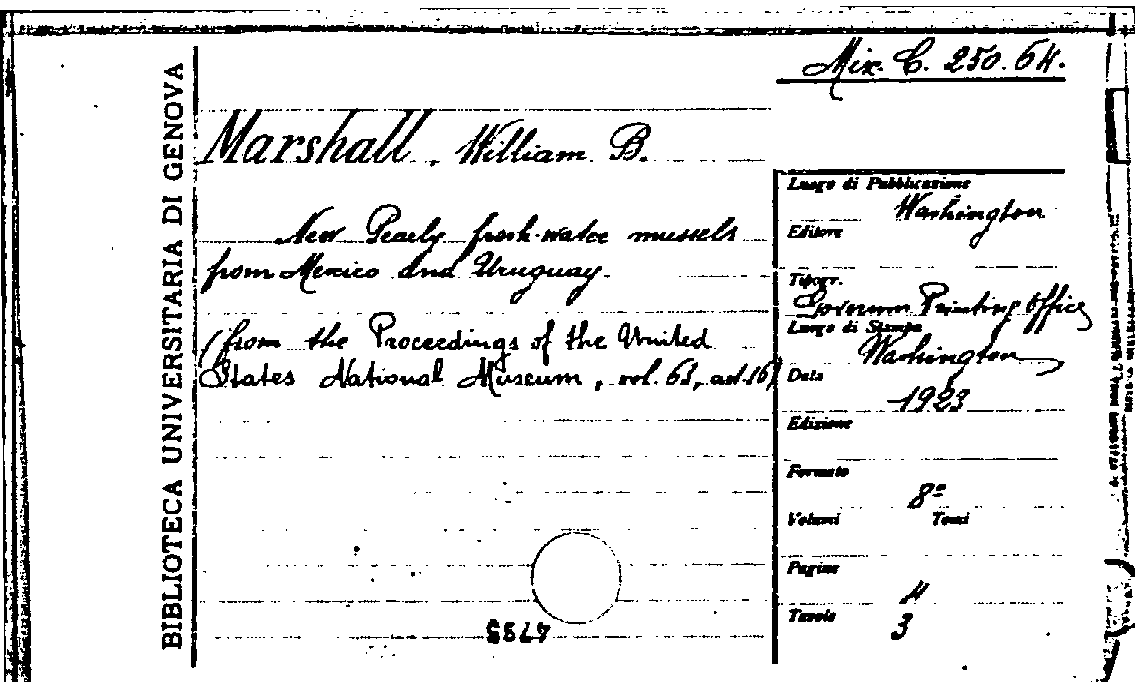 Mix. C. 250. 64.
BIBLIOTECA UNIVERSITARIA DI GENOVA
Marshall, William B.
New Pearly fresh-water mussels
from Mexico and Uruguay.
(from the Proceedings of the United
States National Museum, vol. 63, art. 16)
Luogo di Pubblicazione
Washington
Editore
Tipogr.
Governm Printing Office
Luogo di Stampa
Washington
Data
1923
Edizione
Formato
8°
Volumi Tomi
Pagine
4
Tavole
3
4795